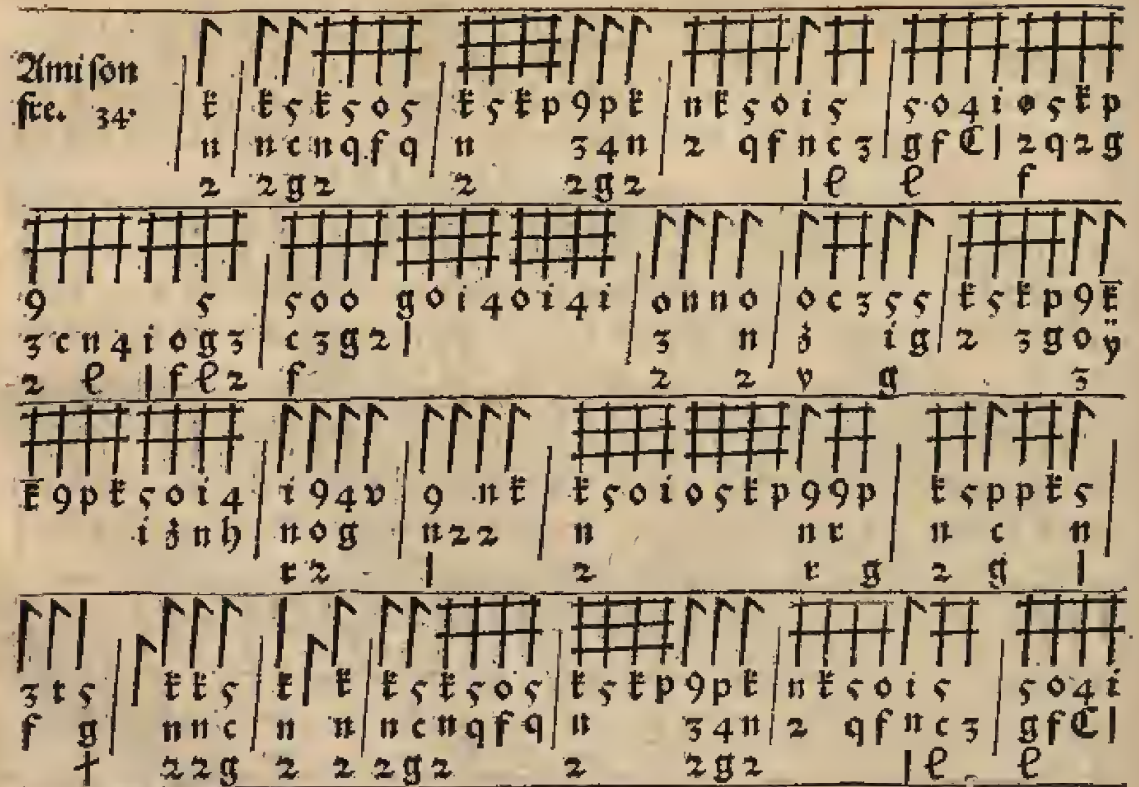 Ami son
fre. 34.
k k 5 k 5 o 5 k 5 k p 9 p k n k 5 o i 5 5 o 4 i o 5 k p
n n c n q f q n 3 4 n 2 q f n c 3 g f C l 2 q 2 g
2 2 g 2 2 2 g 2 l e e f
9 5 5 o o g o i 4 o i 4 i o n n o o c 3 5 5 k 5 k p 9 k̄
3 c n 4 i o g 3 c 3 g 2 l 3 n ʒ i g 2 3 g o ÿ
2 e l f e 2 f 2 2 v g 3
k̄ 9 p k 5 o i 4 i 9 4 v 9 n k k 5 o i o 5 k p 9 9 p k 5 p p k 5
i ʒ n h n o g n 2 2 n n r n c n
r 2 l 2 r g 2 g l
3 t 5 k k 5 k k k 5 k 5 o 5 k 5 k p 9 p k n k 5 o i 5 5 o 4 i
f g n n c n n n c n q f q n 3 4 n 2 q f n c 3 g f C l
† 2 2 g 2 2 2 g 2 2 2 g 2 l e e